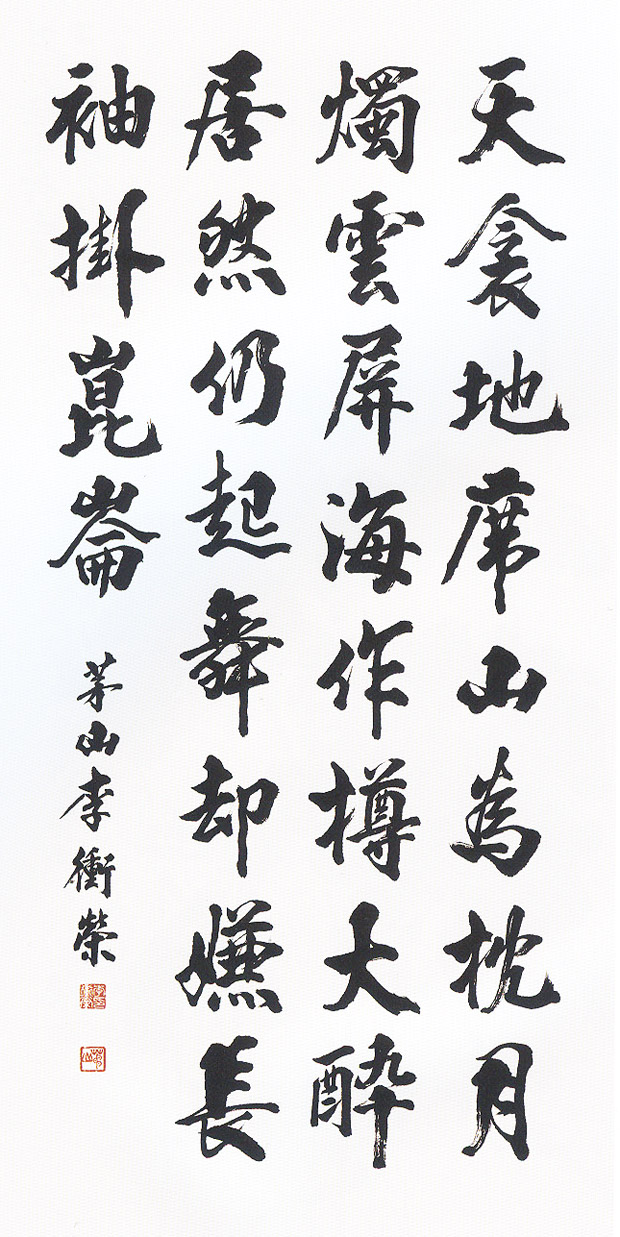 天衾地席山為枕月
燭雲屏海作樽大醉
居然仍起舞却嫌長
袖掛崑崙
茅山李衝榮